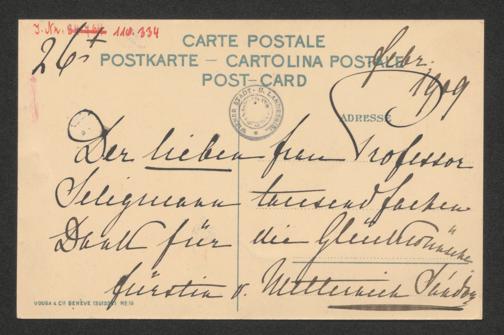 J. Nr. 110.334
26st
Febr.
1909
CARTE POSTALE
POSTKARTE – CARTOLINA POSTALE
POST-CARD
WIENER STADT- U. LANDESBIBL.
ADRESSE
Der lieben Frau Professor
Seligmann tausendfachen
Dank für die Glückwünsche
Fürstin v. Metternich Sándor
VOUGA & Cie GENÈVE (SUISSE) No 16